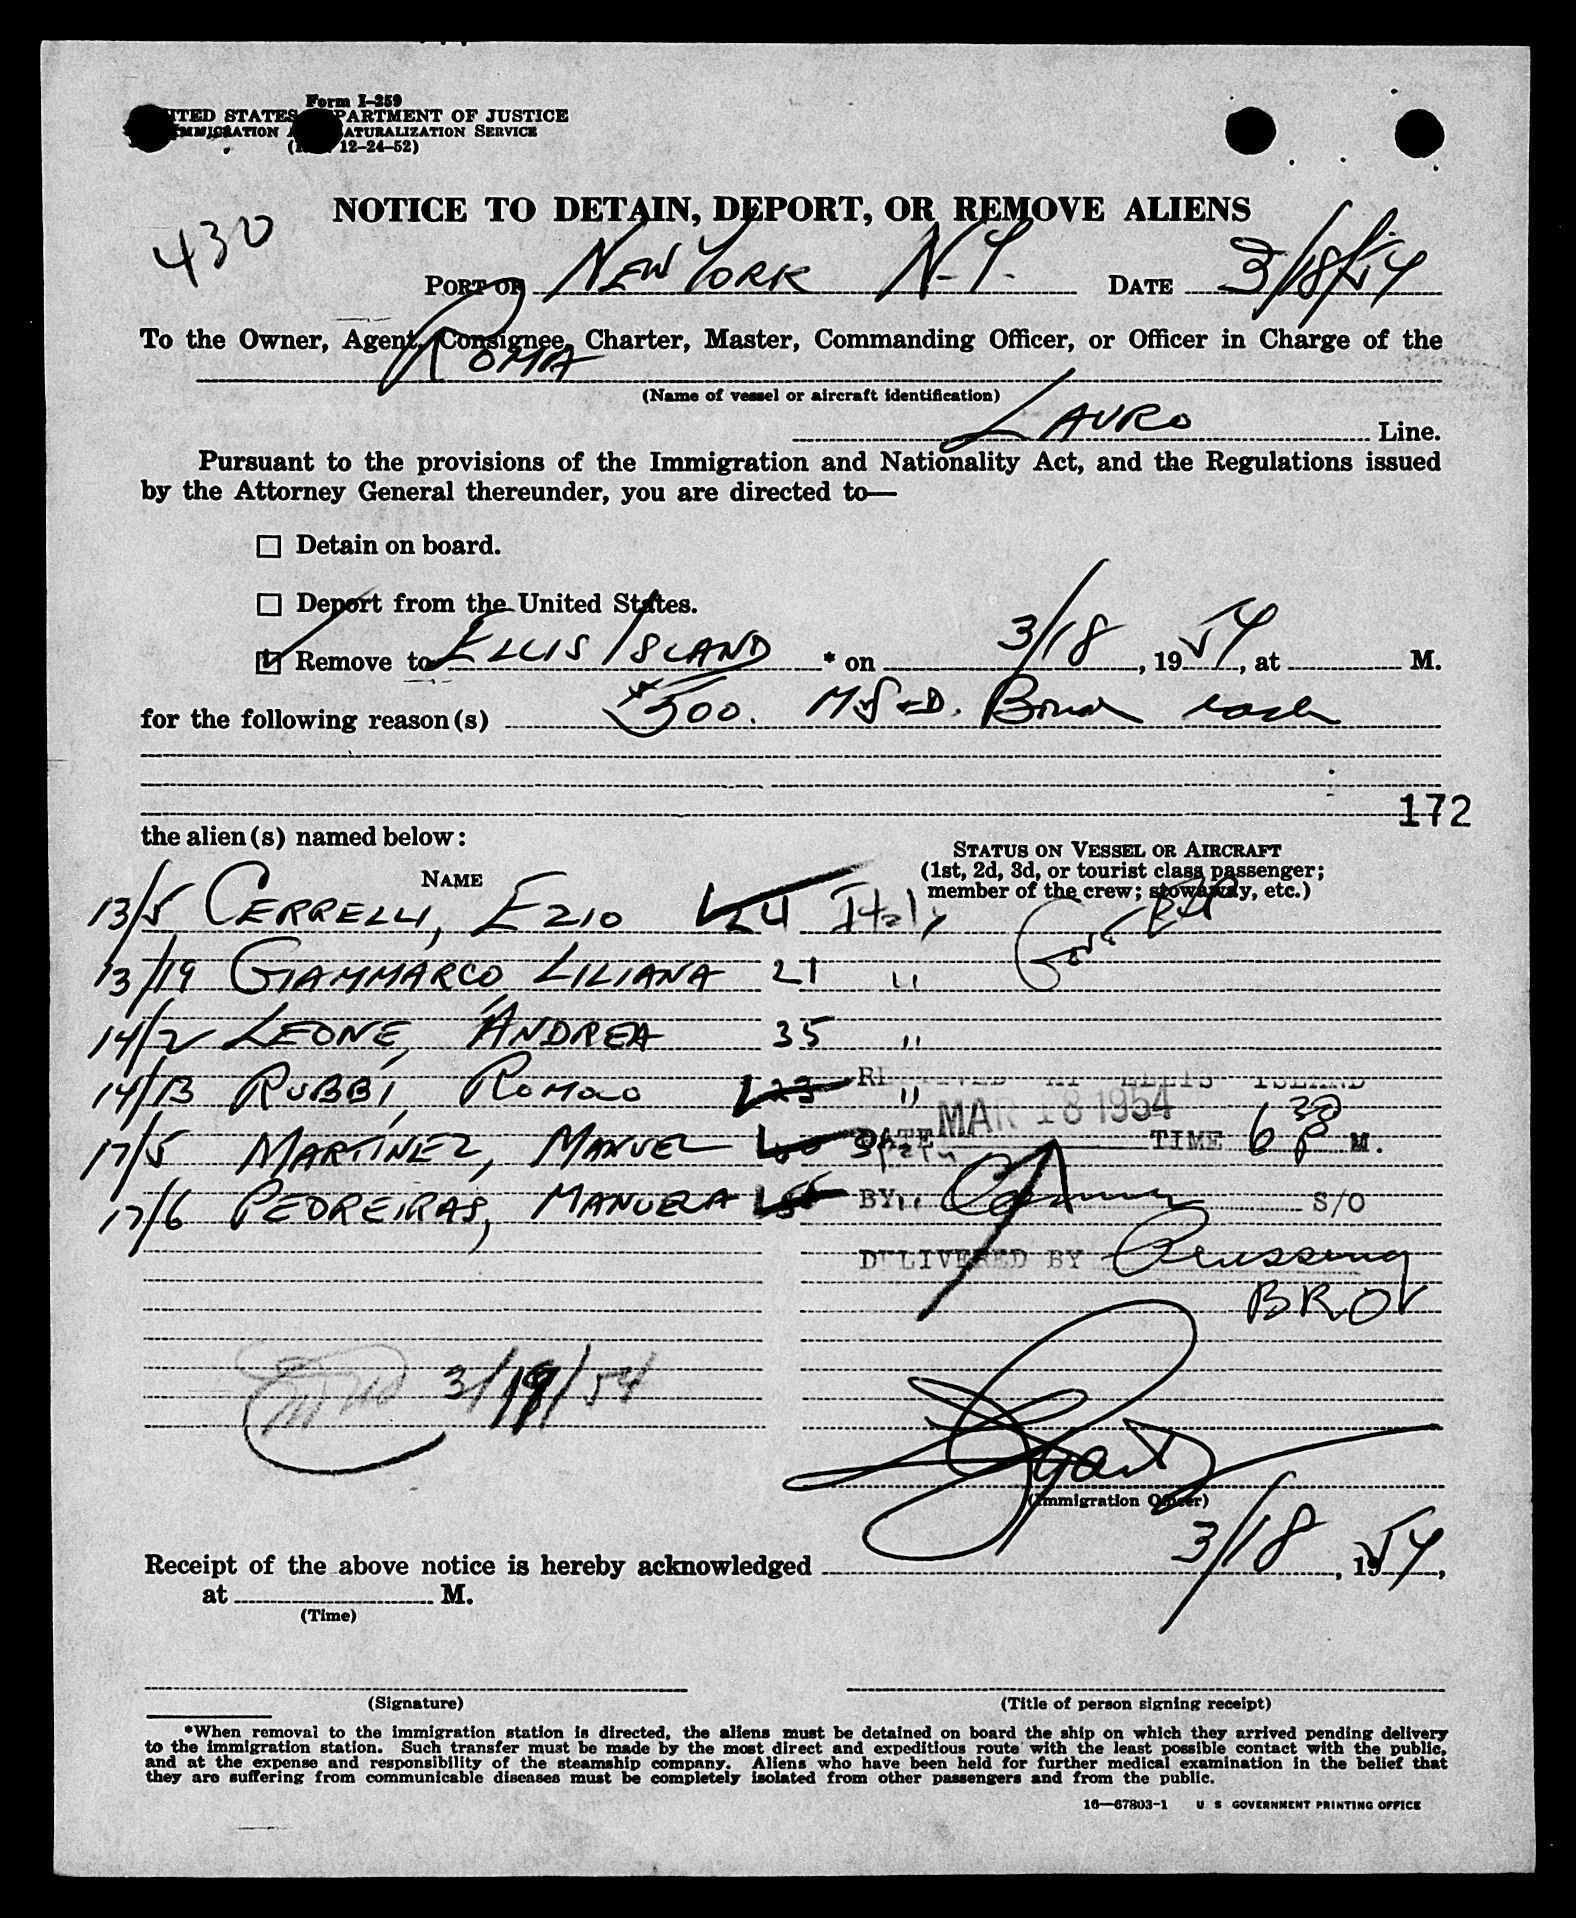 Form I-259
UNITED STATES DEPARTMENT OF JUSTICE
IMMIGRATION AND NATURALIZATION SERVICE
12-24-52)
NOTICE TO DETAIN, DEPORT, OR REMOVE ALIENS
430
PORT OF NEW YORK N.Y. DATE 3/18/54
To the Owner, Agent, Consignee, Charter, Master, Commanding Officer, or Officer in Charge of the
ROMA
(Name of vessel or aircraft identification)
LAURO Line.
Pursuant to the provisions of the Immigration and Nationality Act, and the Regulations issued
by the Attorney General thereunder, you are directed to—
Detain on board.
Deport from the United States.
Remove to ELLIS ISLAND * on 3/18, 1954, at M.
for the following reason(s) $500. M.S+D. Bond each
172
the alien(s) named below:
NAME
STATUS ON VESSEL OR AIRCRAFT
(1st, 2d, 3d, or tourist class passenger;
member of the crew; stowaway, etc.)
13/5 CERRELLI, EZIO 24 Italy
13/19 GIAMMARCO LILIANA 21 "
14/2 LEONE, ANDREA 35 "
14/13 RUBBI, ROMOLO 23 "
RECEIVED AT ELLIS ISLAND
17/5 MARTINEZ, MANUEL Spain
DATE MAR 18 1954 TIME 6 30 P M.
17/6 PEDREIRAS, MANUELA "
BY S/O
DELIVERED BY
BROV
3/19/54
(Immigration Officer)
Receipt of the above notice is hereby acknowledged 3/18, 1954,
at M.
(Time)
(Signature)
(Title of person signing receipt)
*When removal to the immigration station is directed, the aliens must be detained on board the ship on which they arrived pending delivery
to the immigration station. Such transfer must be made by the most direct and expeditious route with the least possible contact with the public,
and at the expense and responsibility of the steamship company. Aliens who have been held for further medical examination in the belief that
they are suffering from communicable diseases must be completely isolated from other passengers and from the public.
16—67803-1 U S GOVERNMENT PRINTING OFFICE